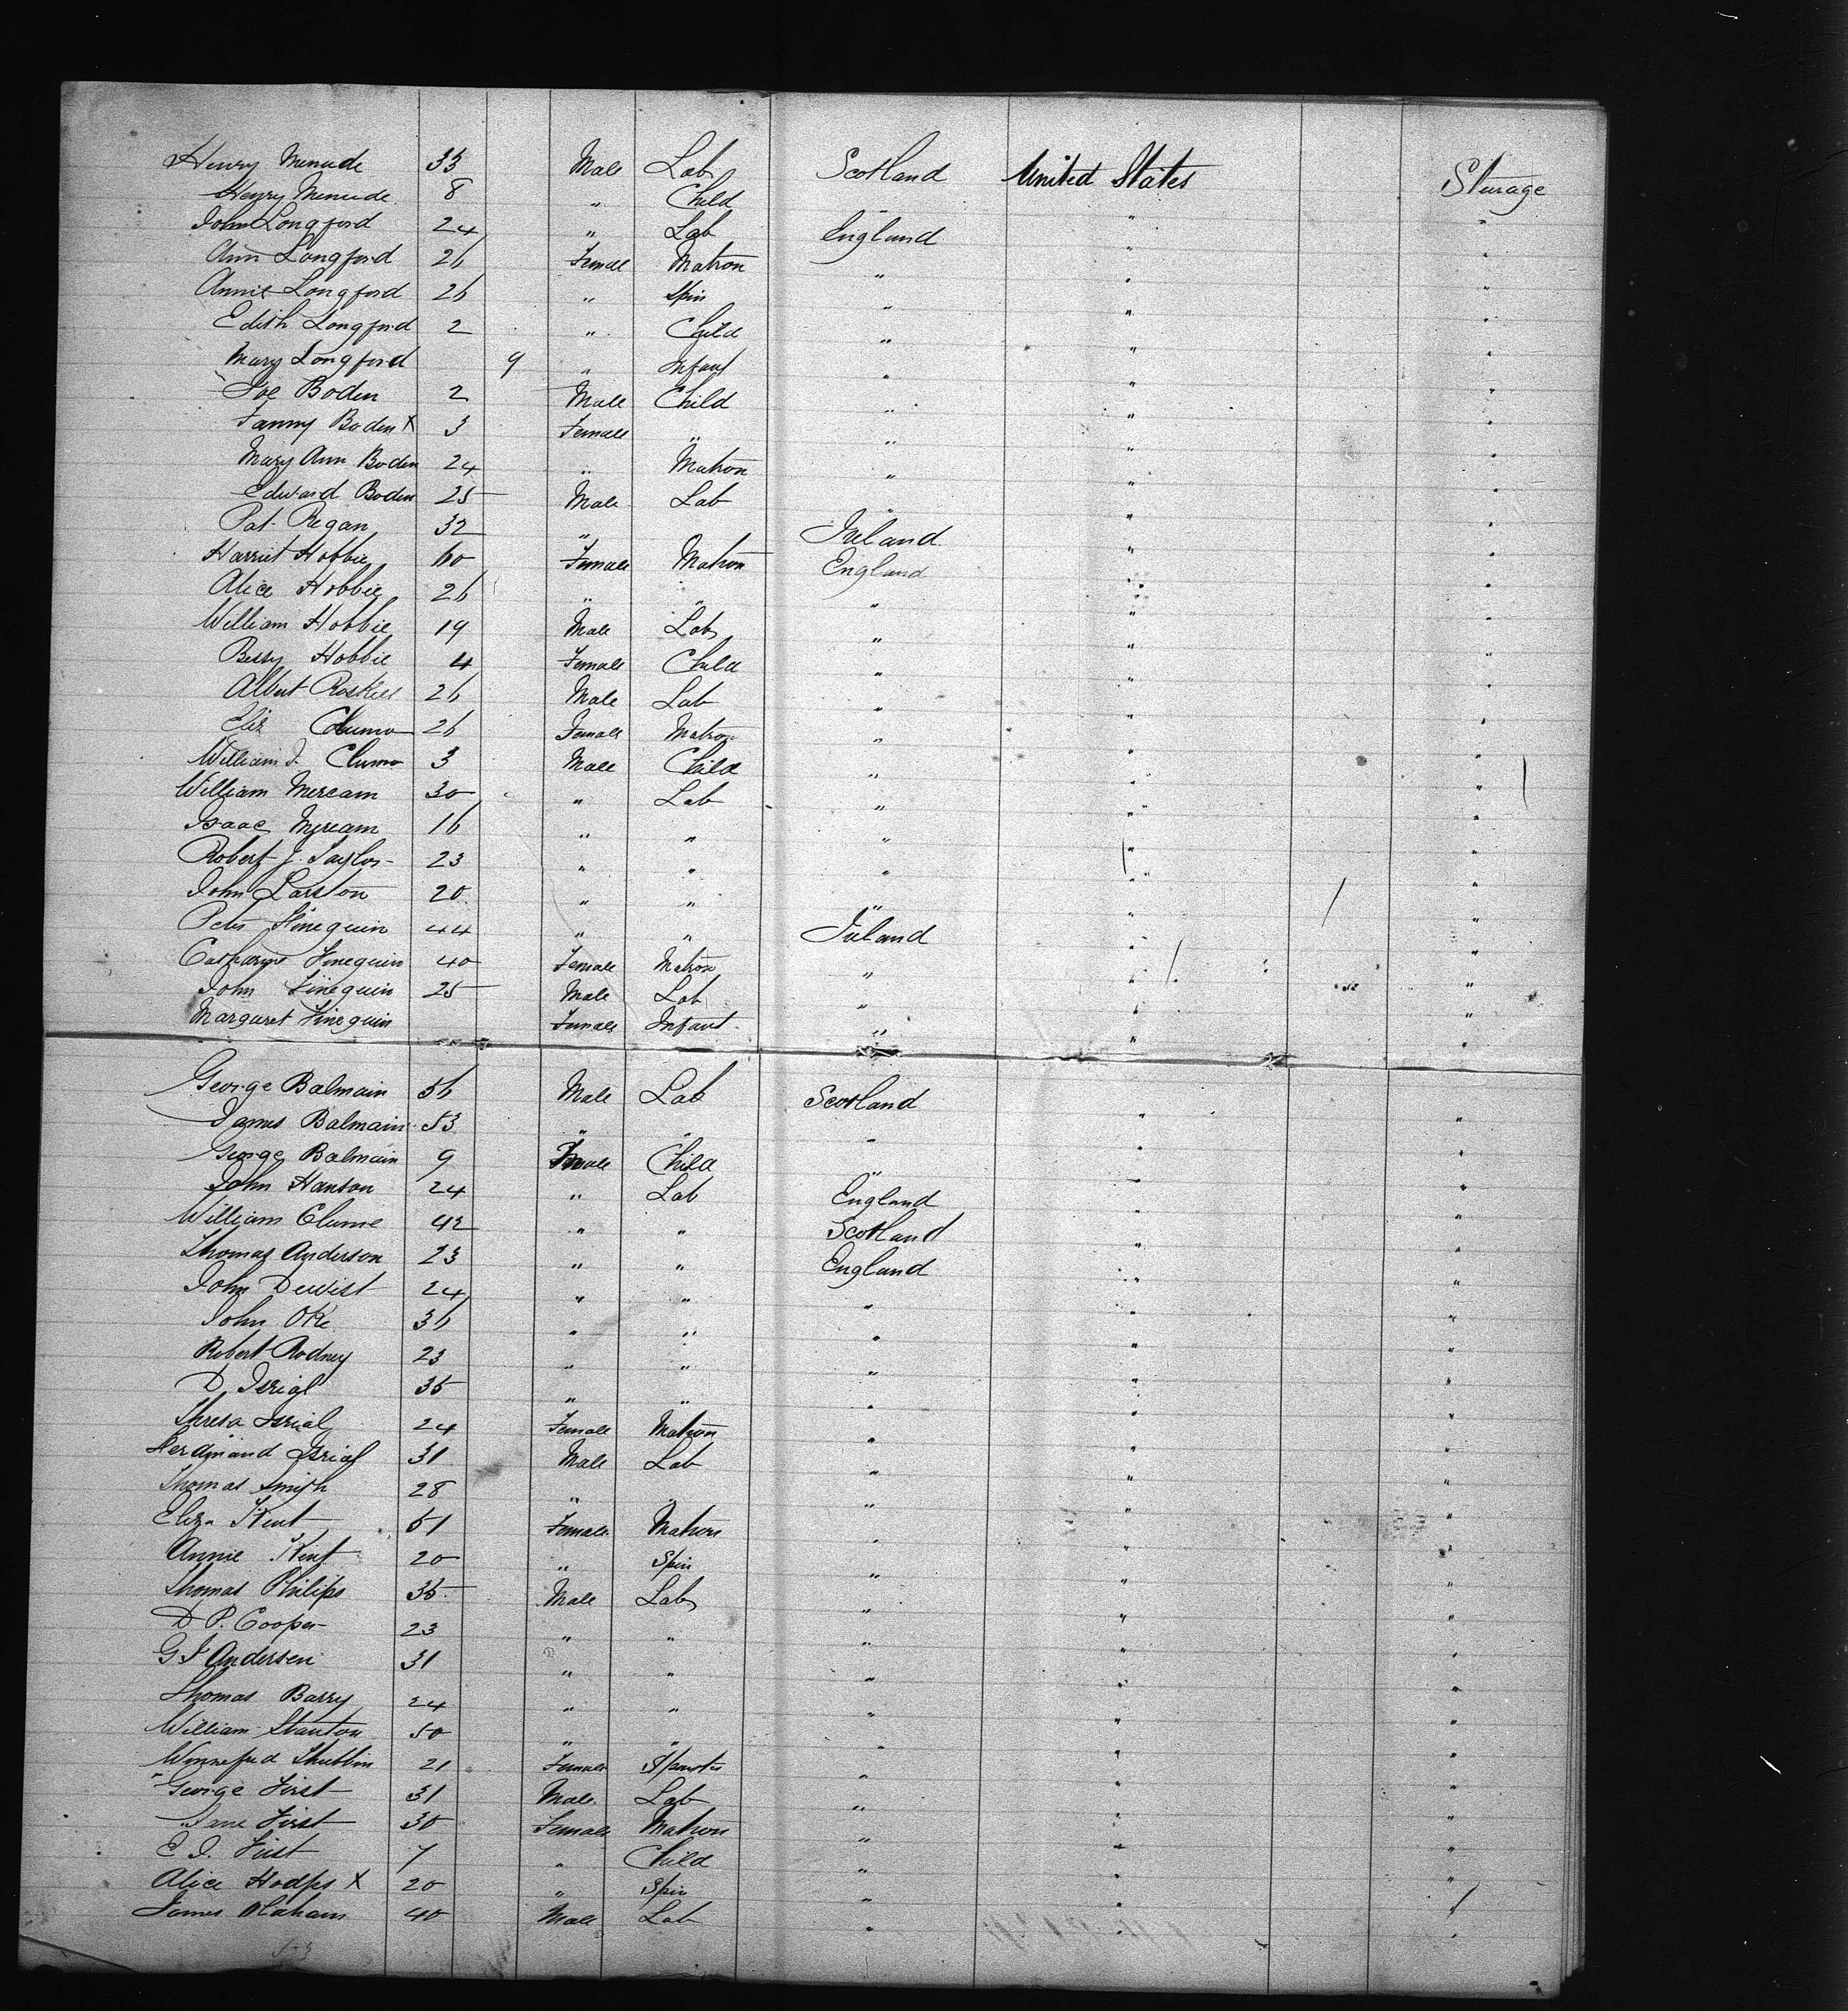 Henry Menude 33 Male Lab Scotland United States Sturage
Henry Menude 8 " Child " " "
John Longford 24 " Lab England " "
Ann Longford 26 Female Matron " " "
Annie Longford 26 " Spin " " "
Edith Longford 2 " Child " " "
Mary Longford 9 " Infant " " "
Joe Boden 2 Male Child " " "
Fanny Boden X 3 Female " " " "
Mary Ann Boden 24 " Matron " " "
Edward Boden 25 Male Lab " " "
Pat Regan 32 " " Ireland " "
Harriet Hobbie 60 Female Matron England " "
Alice Hobbie 26 " " " " "
William Hobbie 19 Male Lab " " "
Bessy Hobbie 4 Female Child " " "
Albert Roskell 26 Male Lab " " "
Eliz Clumo 26 Female Matron " " "
William J. Clumo 3 Male Child " " "
William Mercam 30 " Lab " " "
Isaac Myream 16 " " " " "
Robert J. Taylor 23 " " " " "
John Larston 20 " " " " "
Peter Finequin 44 " " Ireland " "
Catharine Finequin 40 Female Matron " " "
John Finequin 25 Male Lab " " "
Margaret Finequin Female Infant " " "
George Balmain 56 Male Lab Scotland " "
James Balmain 53 " " " " "
George Balmain 9 Male Child " " "
John Hanson 24 " Lab England " "
William Clume 42 " " Scotland " "
Thomas Anderson 23 " " England " "
John Dewist 24 " " " " "
John Oke 36 " " " " "
Robert Rodney 23 " " " " "
D. Isrial 35 " " " " "
Thresa Isrial 24 Female Matron " " "
Ferdinand Isrial 31 Male Lab " " "
Thomas Smith 28 " " " " "
Eliza Kent 61 Female Matron " " "
Annie Kent 20 " Spin " " "
Thomas Philips 35 Male Lab " " "
D P. Cooper 23 " " " " "
G J Andersen 31 " " " " "
Thomas Barry 24 " " " " "
William Stanton 50 " " " " "
Winnefred 21 Female " " "
George First 31 Male Lab " " "
Jane First 30 Female Matron " " "
E. J. First 7 " Child " " "
Alice Hodps X 20 " Spin " " "
James 40 Male Lab " " "